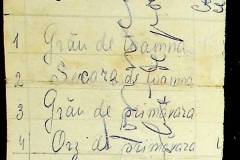 1 Grâu de toamnă
2 Secara de toamna
3 Grâu de primăvara
4 Orz de primavara